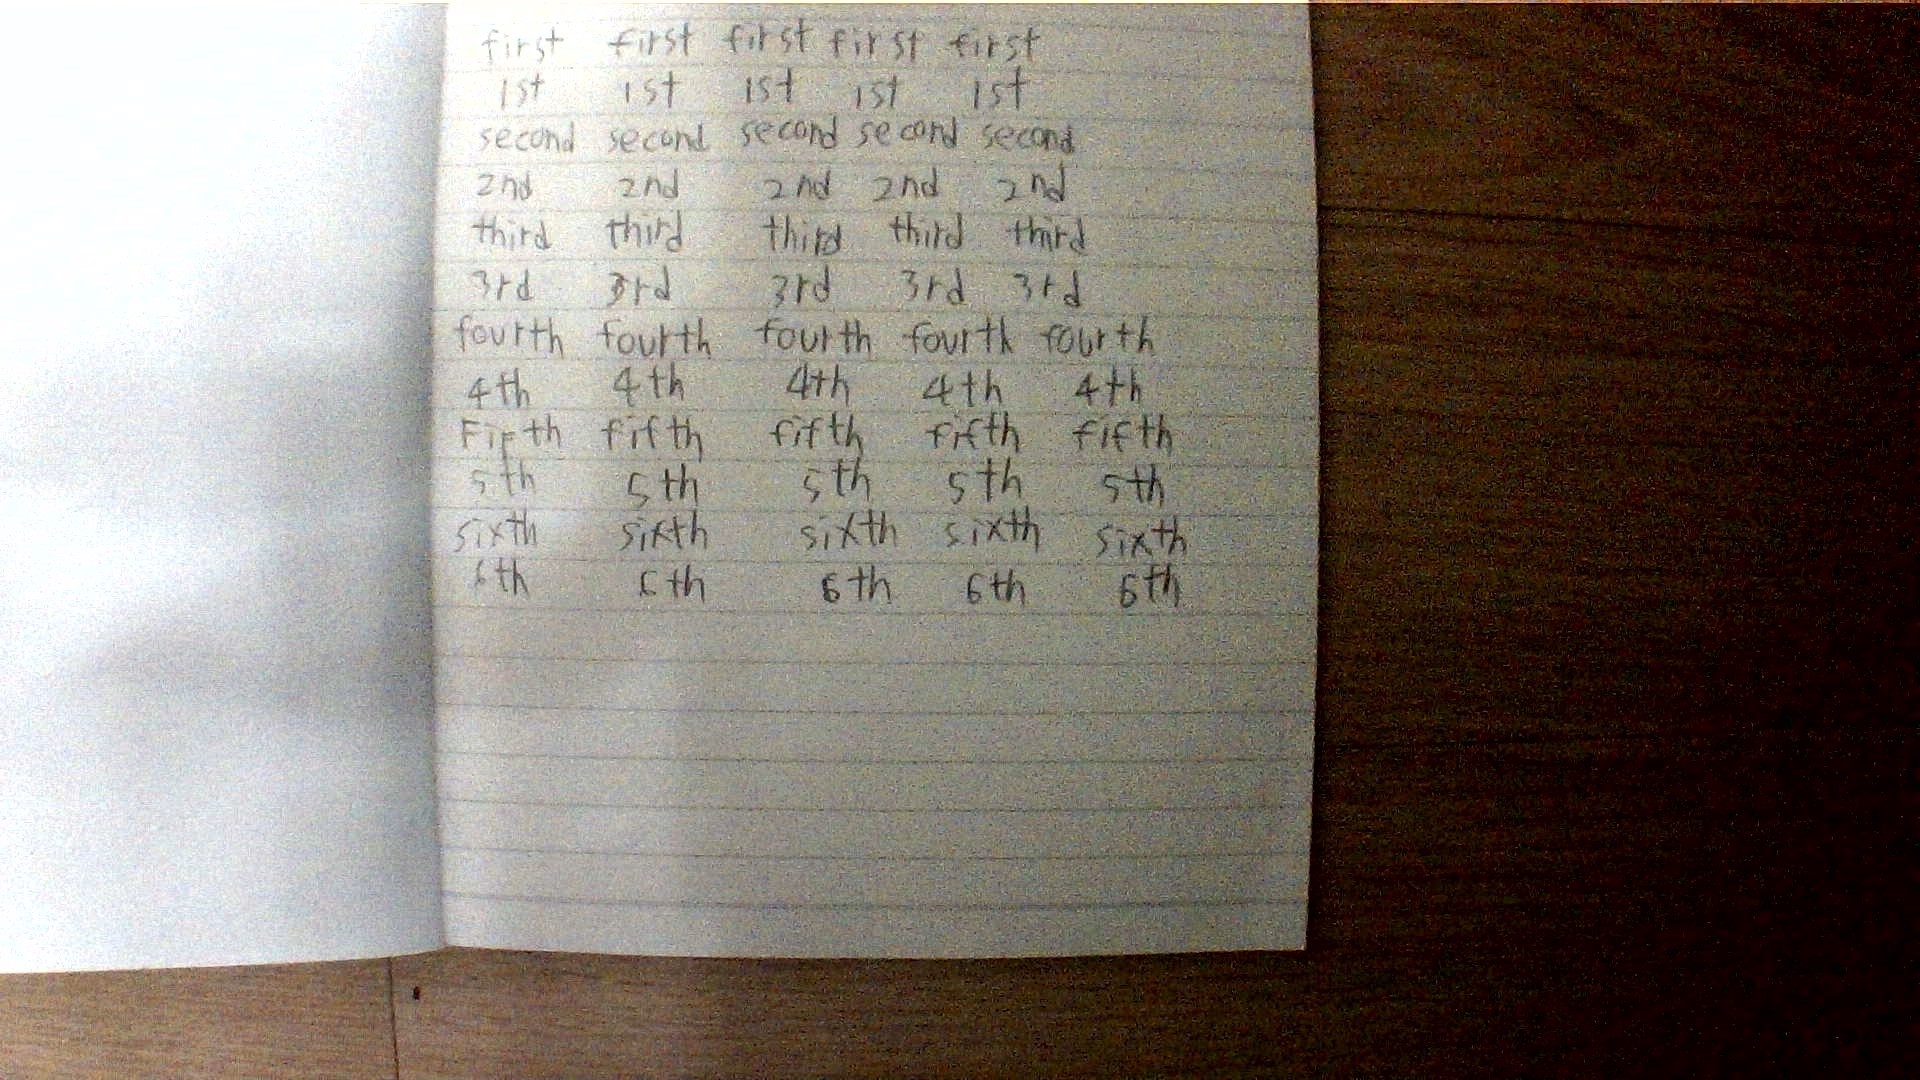 first first first first first
1st 1st 1st 1st 1st
second second second second second
2nd 2nd 2nd 2nd 2nd
third third third third third
3rd 3rd 3rd 3rd 3rd
fourth fourth fourth fourth fourth
4th 4th 4th 4th 4th
Fifth fifth fifth fifth fifth
5th 5th 5th 5th 5th
sixth sixth sixth sixth sixth
6th 6th 6th 6th 6th